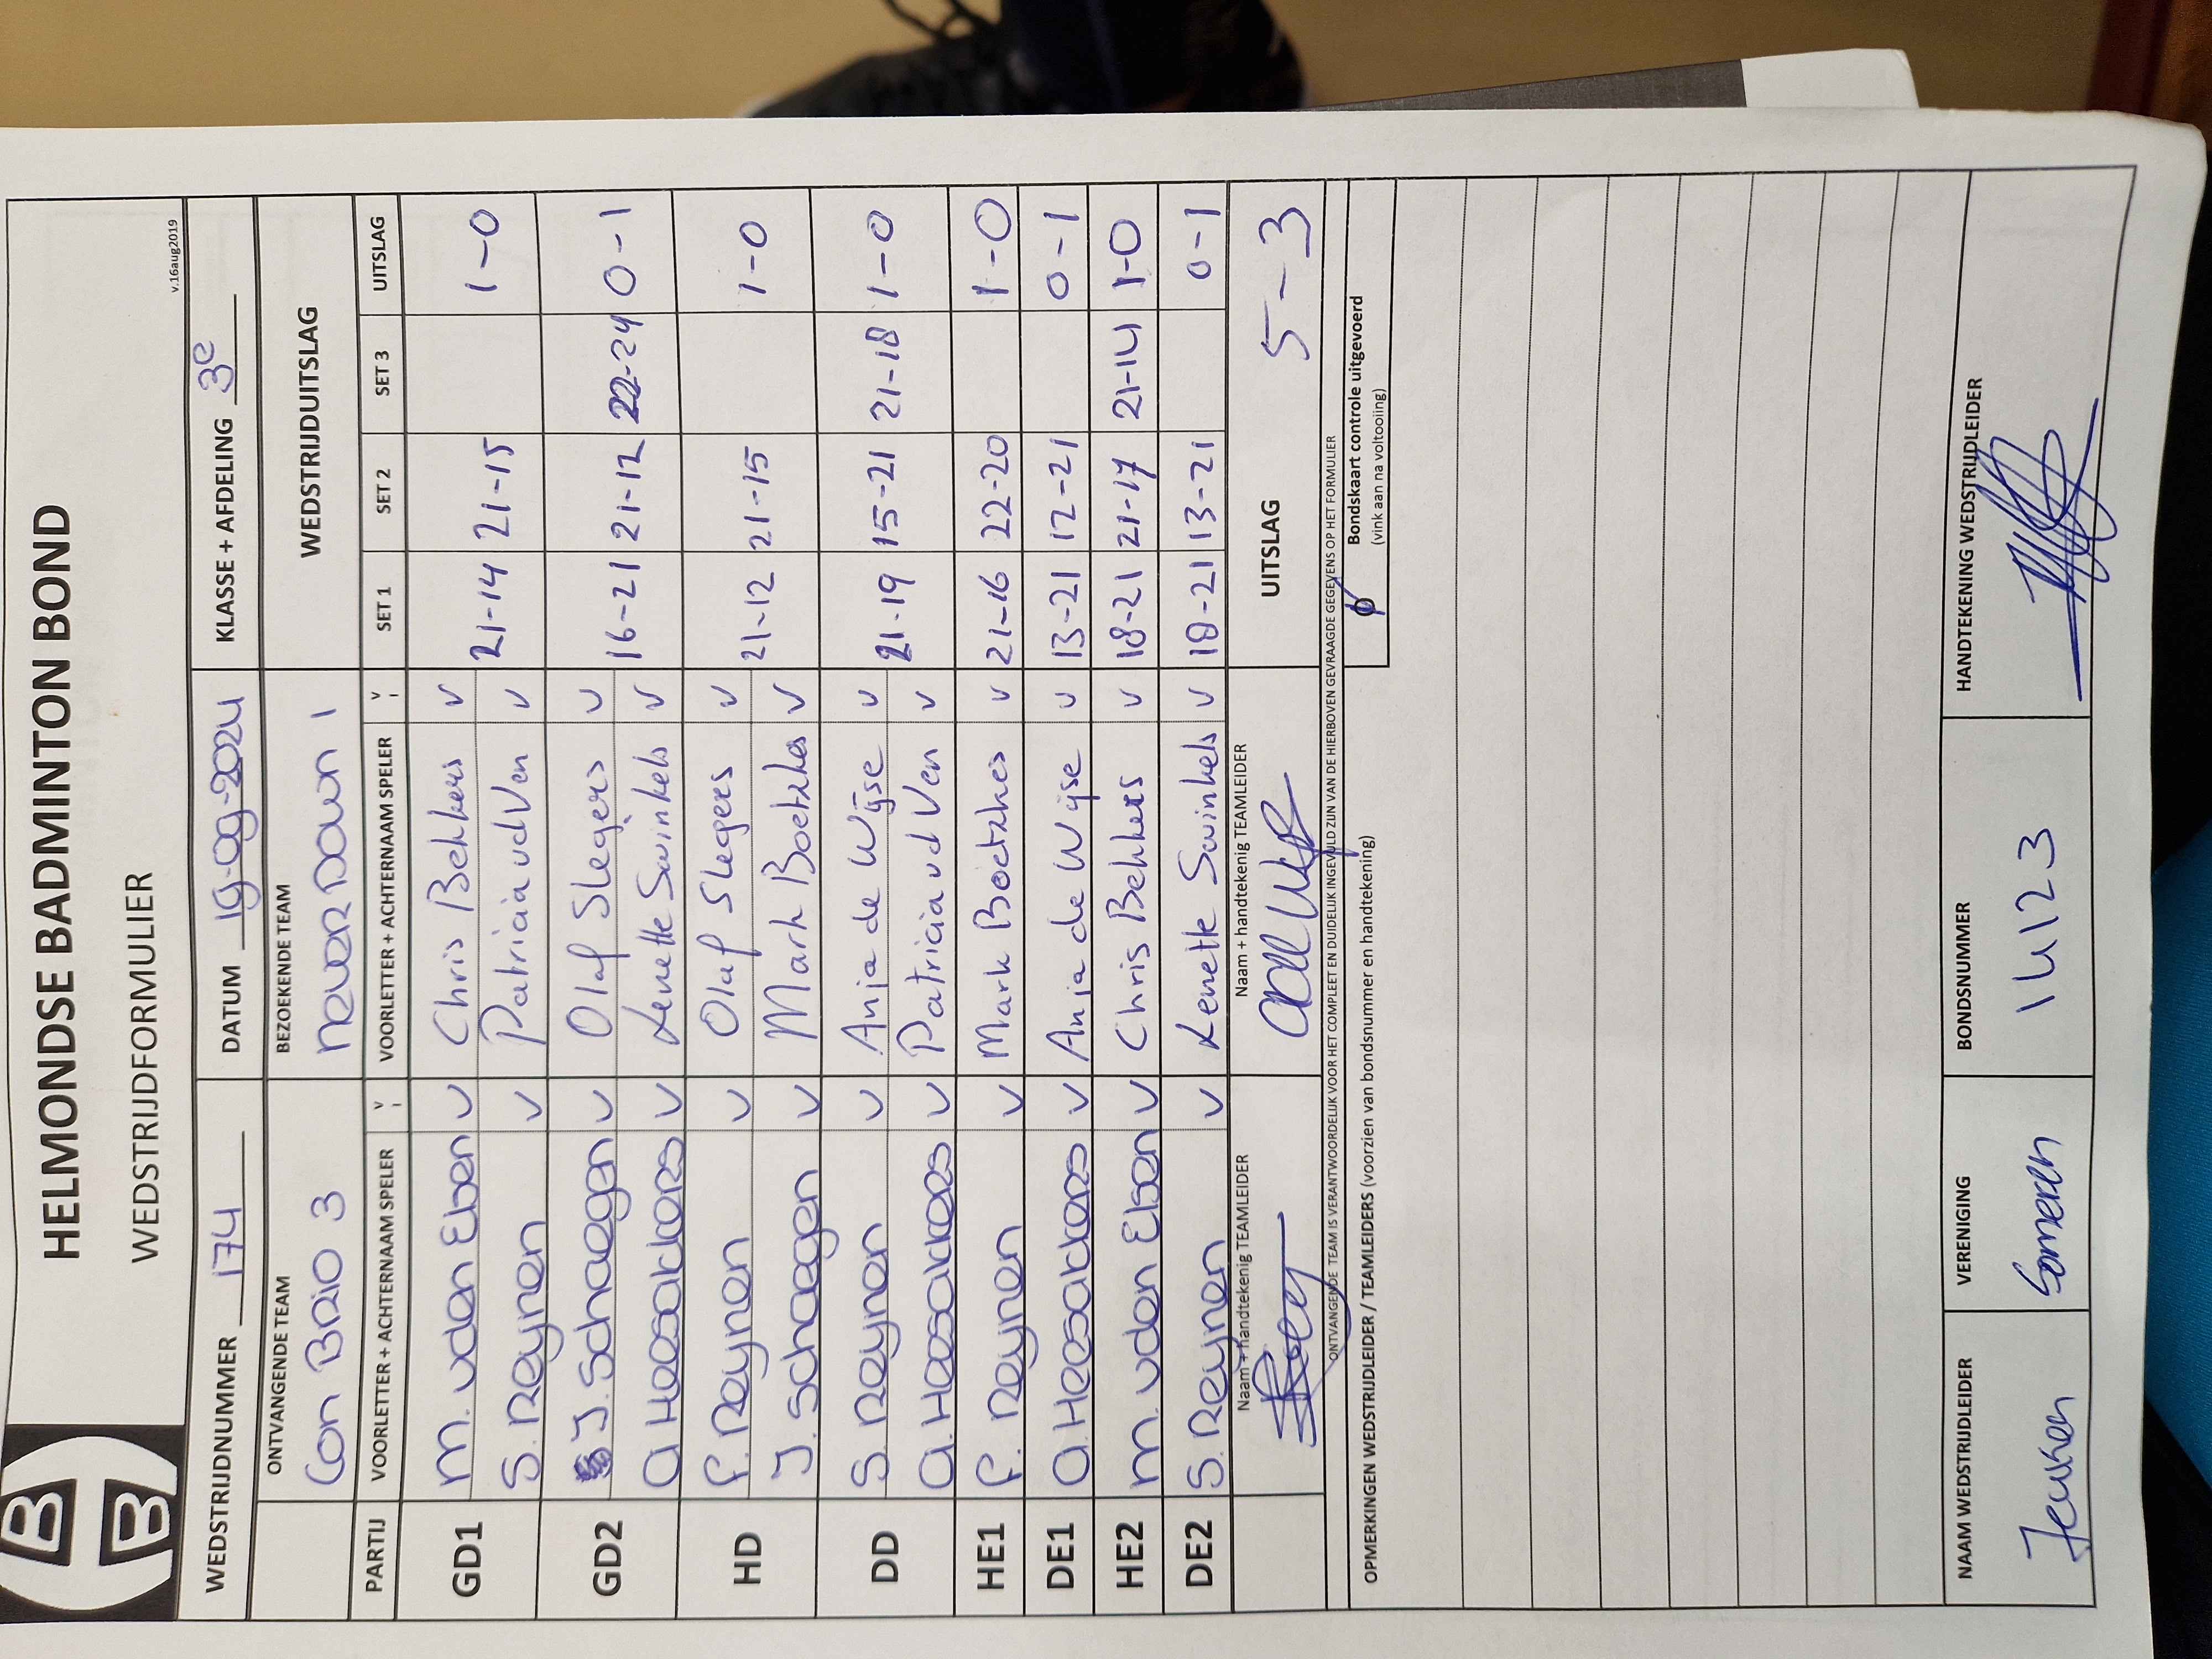 HELMONDSE BADMINTON BOND
WEDSTRIJDFORMULIER
v.16aug2019
WEDSTRIJDNUMMER 174 DATUM 19-09-2024 KLASSE + AFDELING 3e
ONTVANGENDE TEAM BEZOEKENDE TEAM WEDSTRIJDUITSLAG
Con Brio 3 never Down 1
PARTIJ VOORLETTER + ACHTERNAAM SPELER V VOORLETTER + ACHTERNAAM SPELER V SET 1 SET 2 SET 3 UITSLAG
GD1 M. vden Elsen v Chris Bekkers v 21-14 21-15 1-0
S. Reynen v Patricia vd Ven v
GD2 J. Schaegen v Olaf Slegers v 16-21 21-12 22-24 0-1
a. Heesakkers v Lenette Swinkels v
HD P. Reynen v Olaf Slegers v 21-12 21-15 1-0
J. Schaegen v Mark Boetzkes v
DD S. Reynen v Anja de Wijse v 21-19 15-21 21-18 1-0
a. Heesakkers v Patricia vd Ven v
HE1 P. Reynen v Mark Boetzkes v 21-16 22-20 1-0
DE1 a. Heesakkers v Anja de Wijse v 13-21 12-21 0-1
HE2 M. vden Elsen v Chris Bekkers v 18-21 21-17 21-14 1-0
DE2 S. Reynen v Lenette Swinkels v 18-21 13-21 0-1
Naam + handtekenig TEAMLEIDER Naam + handtekenig TEAMLEIDER UITSLAG 5-3
ONTVANGENDE TEAM IS VERANTWOORDELIJK VOOR HET COMPLEET EN DUIDELIJK INGEVULD ZIJN VAN DE HIERBOVEN GEVRAAGDE GEGEVENS OP HET FORMULIER
Bondskaart controle uitgevoerd
(vink aan na voltooiing)
OPMERKINGEN WEDSTRIJDLEIDER / TEAMLEIDERS (voorzien van bondsnummer en handtekening)
NAAM WEDSTRIJDLEIDER VERENIGING BONDSNUMMER HANDTEKENING WEDSTRIJDLEIDER
Someren 14123